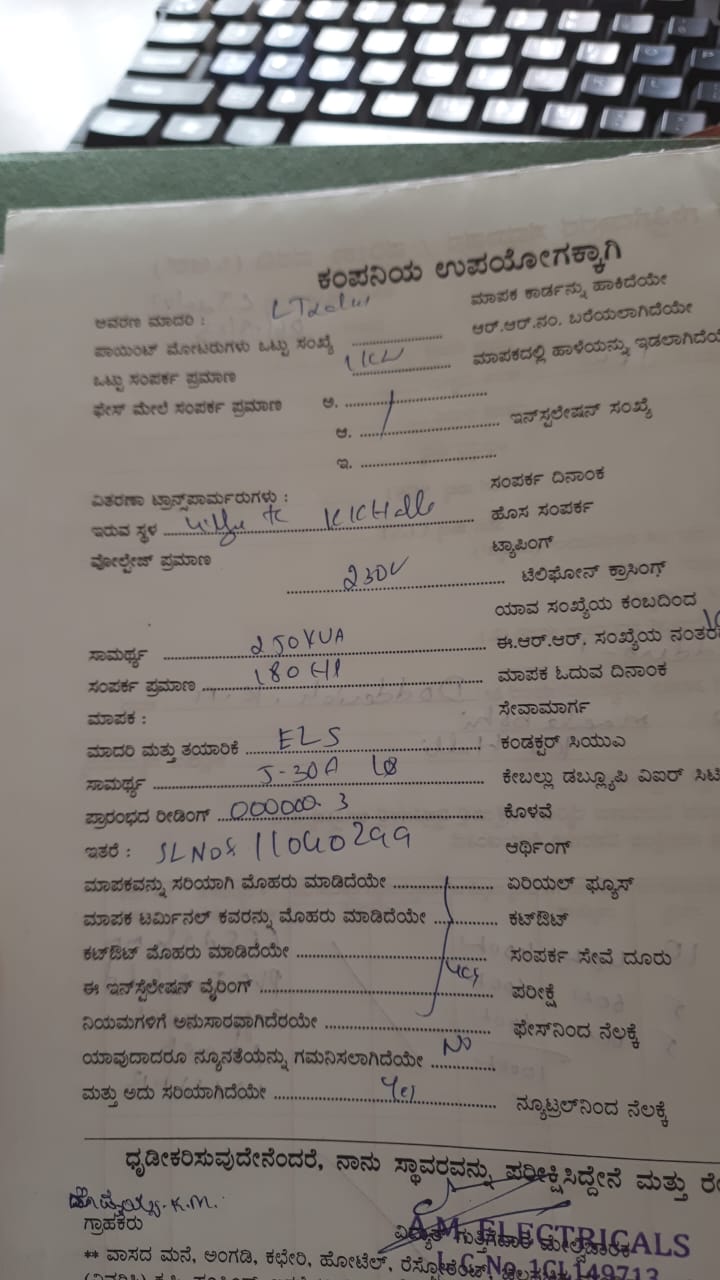 ಕಂಪನಿಯ ಉಪಯೋಗಕ್ಕಾಗಿ
ಆವರಣ ಮಾದರಿ :
ಮಾಪಕ ಕಾರ್ಡನ್ನು ಹಾಕಿದೆಯೇ
ಪಾಯಿಂಟ್ ಮೋಟರುಗಳು ಒಟ್ಟು ಸಂಖ್ಯೆ
ಆರ್.ಆರ್.ನಂ. ಬರೆಯಲಾಗಿದೆಯೇ
ಒಟ್ಟು ಸಂಪರ್ಕ ಪ್ರಮಾಣ
ಮಾಪಕದಲ್ಲಿ ಹಾಳೆಯನ್ನು ಇಡಲಾಗಿದೆಯೇ
ಫೇಸ್ ಮೇಲೆ ಸಂಪರ್ಕ ಪ್ರಮಾಣ ಅ.
ಆ. ಇನ್‌ಸ್ಪಲೇಷನ್ ಸಂಖ್ಯೆ
ಇ.
ಸಂಪರ್ಕ ದಿನಾಂಕ
ವಿತರಣಾ ಟ್ರಾನ್ಸ್‌ಪಾರ್ಮರುಗಳು :
ಇರುವ ಸ್ಥಳ ಹೊಸ ಸಂಪರ್ಕ
ವೋಲ್ಟೇಜ್ ಪ್ರಮಾಣ 230V ಟ್ಯಾಪಿಂಗ್
ಟೆಲಿಫೋನ್ ಕ್ರಾಸಿಂಗ್
ಯಾವ ಸಂಖ್ಯೆಯ ಕಂಬದಿಂದ
ಸಾಮರ್ಥ್ಯ 250KVA ಈ.ಆರ್.ಆರ್. ಸಂಖ್ಯೆಯ ನಂತರ
ಸಂಪರ್ಕ ಪ್ರಮಾಣ 180HP ಮಾಪಕ ಓದುವ ದಿನಾಂಕ
ಮಾಪಕ : ಸೇವಾಮಾರ್ಗ
ಮಾದರಿ ಮತ್ತು ತಯಾರಿಕೆ EZS ಕಂಡಕ್ಟರ್ ಸಿಯುಎ
ಸಾಮರ್ಥ್ಯ 5-30A ಕೇಬಲ್ಲು ಡಬ್ಲ್ಯೂಪಿ ವಿಐರ್ ಸಿಟಿ
ಪ್ರಾರಂಭದ ರೀಡಿಂಗ್ 000000.3 ಕೊಳವೆ
ಇತರೆ : SLNO: 11040299 ಆರ್ಥಿಂಗ್
ಮಾಪಕವನ್ನು ಸರಿಯಾಗಿ ಮೊಹರು ಮಾಡಿದೆಯೇ ಏರಿಯಲ್ ಫ್ಯೂಸ್
ಮಾಪಕ ಟರ್ಮಿನಲ್ ಕವರನ್ನು ಮೊಹರು ಮಾಡಿದೆಯೇ ಕಟ್‌ಔಟ್
ಕಟ್‌ಔಟ್ ಮೊಹರು ಮಾಡಿದೆಯೇ ಸಂಪರ್ಕ ಸೇವೆ ದೂರು
ಈ ಇನ್‌ಸ್ಪೆಲೇಷನ್ ವೈರಿಂಗ್ Yes ಪರೀಕ್ಷೆ
ನಿಯಮಗಳಿಗೆ ಅನುಸಾರವಾಗಿದೆರಯೇ ಫೇಸ್‌ನಿಂದ ನೆಲಕ್ಕೆ
ಯಾವುದಾದರೂ ನ್ಯೂನತೆಯನ್ನು ಗಮನಿಸಲಾಗಿದೆಯೇ No
ಮತ್ತು ಅದು ಸರಿಯಾಗಿದೆಯೇ Yes ನ್ಯೂಟ್ರಲ್‌ನಿಂದ ನೆಲಕ್ಕೆ
ಧೃಡೀಕರಿಸುವುದೇನೆಂದರೆ, ನಾನು ಸ್ಥಾವರವನ್ನು ಪರೀಕ್ಷಿಸಿದ್ದೇನೆ ಮತ್ತು
K.M.
ಗ್ರಾಹಕರು ವಿದ್ಯುತ್ ಗುತ್ತಿಗೆದಾರ ಮೇಲ್ವಿಚಾರಕ
A.M. ELECTRICALS
** ವಾಸದ ಮನೆ, ಅಂಗಡಿ, ಕಛೇರಿ, ಹೋಟೆಲ್, ರೆಸ್ಟೋರೆಂಟ್,